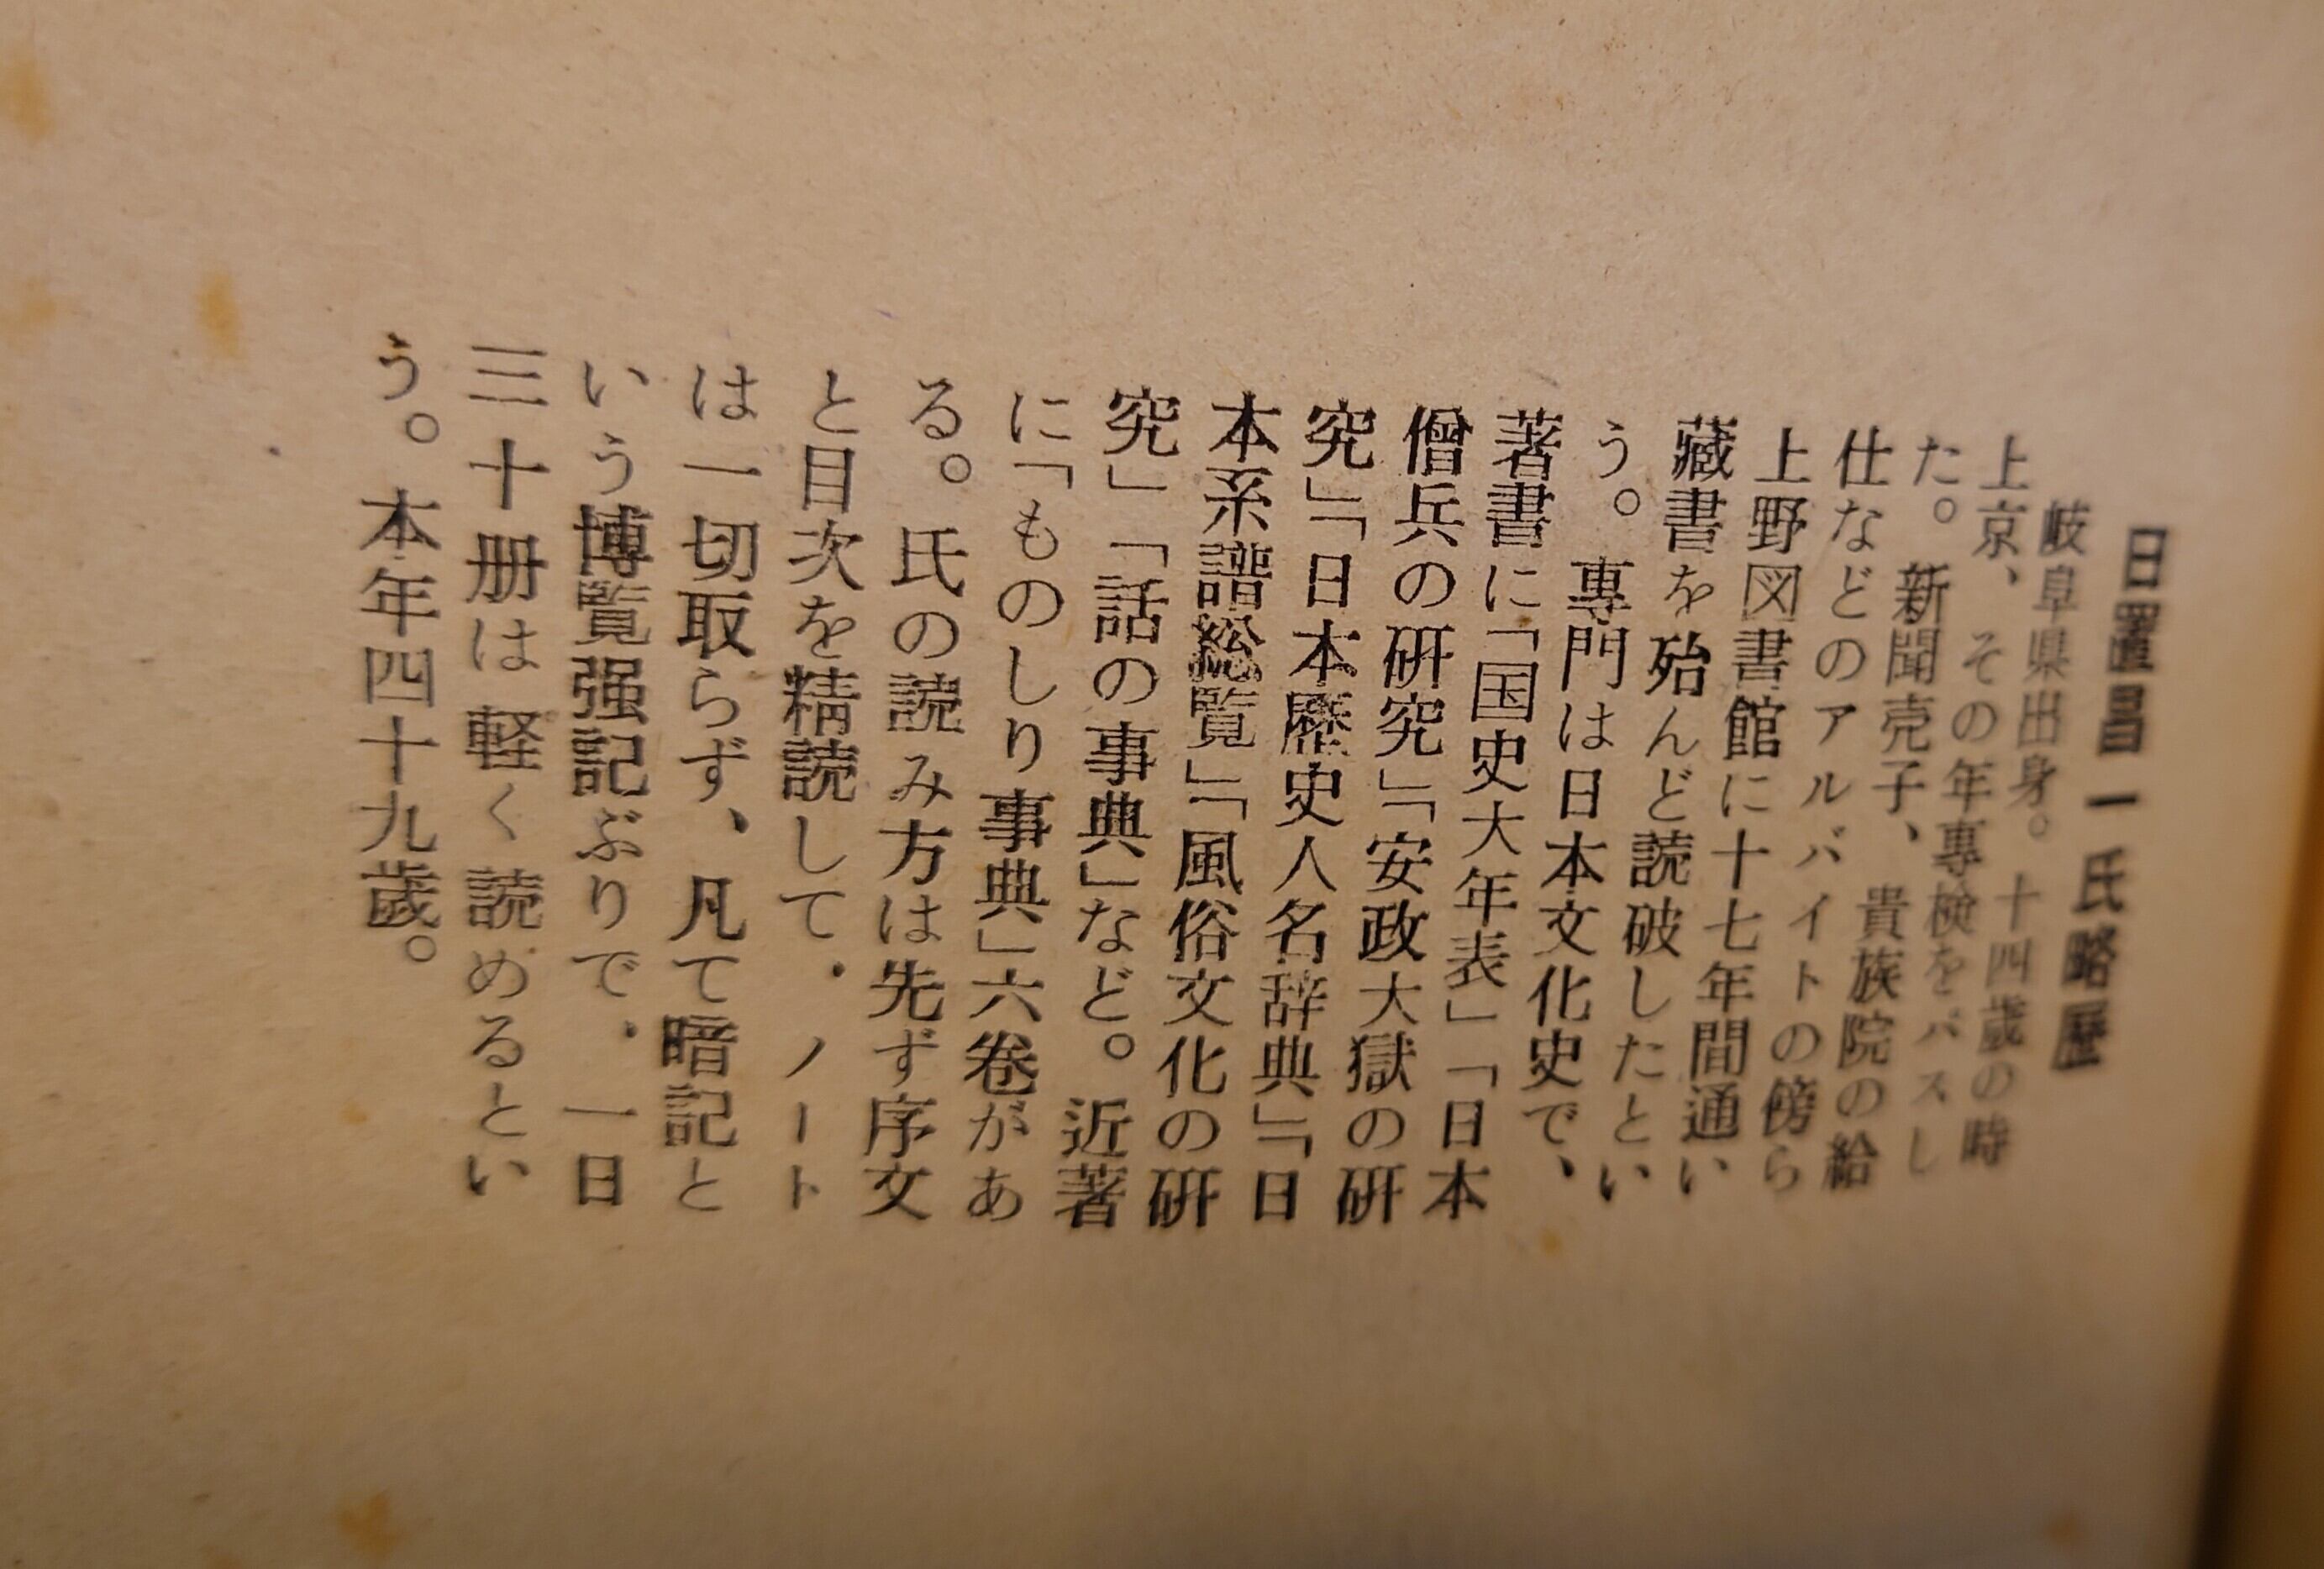 日置昌一氏略歴
岐阜県出身。十四歳の時
上京、その年専検をパスし
た。新聞売子、貴族院の給
仕などのアルバイトの傍ら
上野図書館に十七年間通い
藏書を殆んど読破したとい
う。専門は日本文化史で、
著書に「国史大年表」「日本
僧兵の研究」「安政大獄の研
究」「日本歴史人名辞典」「日
本系譜総覧」「風俗文化の研
究」「話の事典」など。近著
に「ものしり事典」六巻があ
る。氏の読み方は先ず序文
と目次を精読して、ノート
は一切取らず、凡て暗記と
いう博覧强記ぶりで、一日
三十册は軽く読めるとい
う。本年四十九歲。